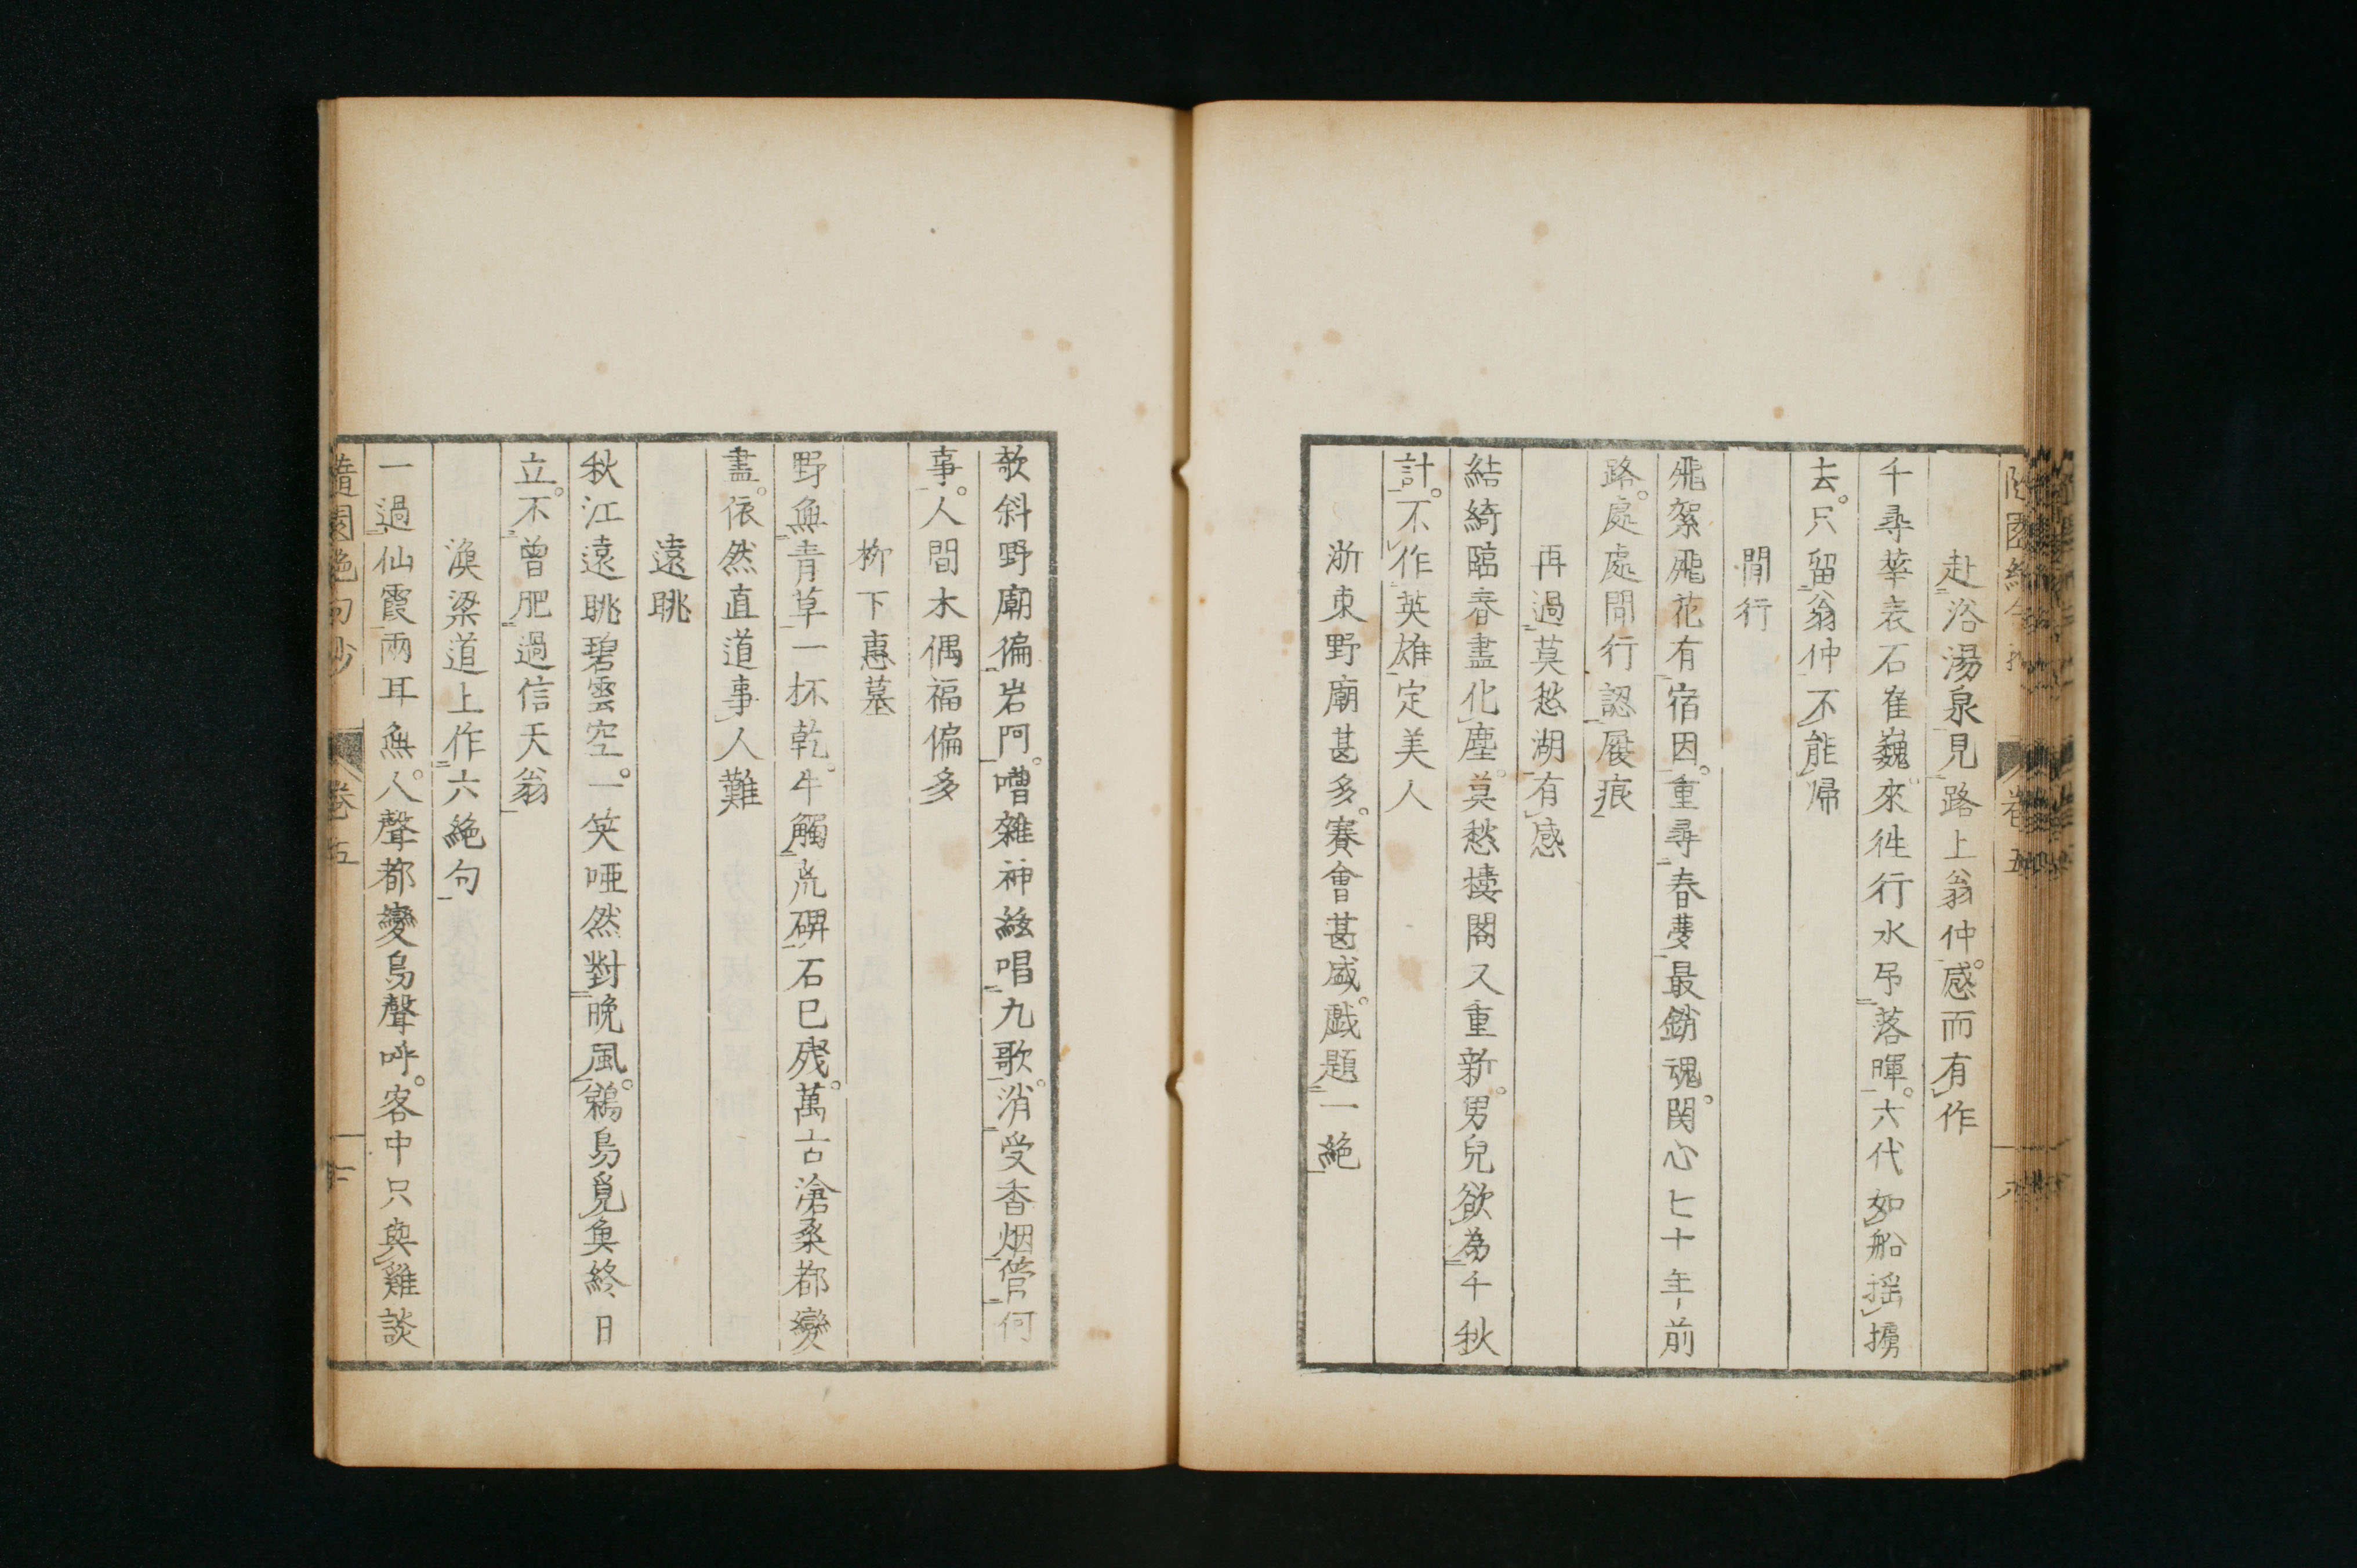 赴浴湯泉見路上翁仲。感而有作
千尋華表石崔巍。來徃行水吊落暉。六代如船摇擄
去。只留翁仲不能歸
間行
飛絮飛花有宿因。重尋春夢最銷魂。関心七十年前
路。處處間行認屐痕
再過莫愁湖有感
結綺臨春盡化塵。莫愁摟閣又重新。男兒欲為千秋
計。不作英雄定美人
浙東野廟甚多。賽會甚盛。戯題一絶
欹斜野廟徧岩阿。嘈雜神絃唱九歌。消受香烟管何
事。人間木偶福偏多
柳下惠墓
野無青草一抔乾。牛觸荒碑石已殘。萬古滄桑都變
盡。依然直道事人難
遠眺
秋江遠眺碧雲空。一笑啞然對晩風。鵜鳥覓魚終日
立。不曾肥過信天翁
漁梁道上作六絶句
一過仙霞兩耳無。人聲都變鳥聲呼。客中只與雞談
隨園絶句抄 卷五